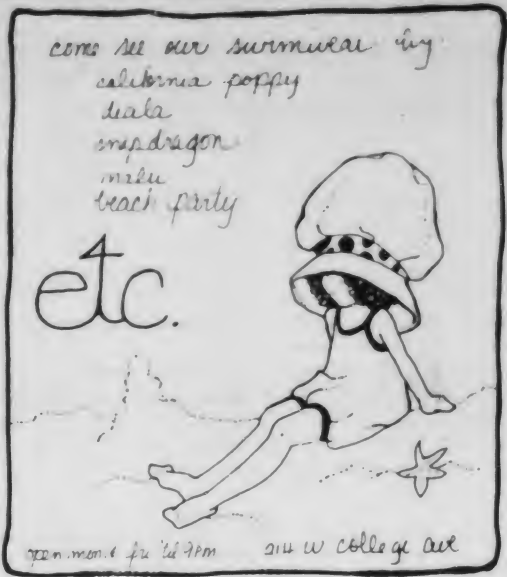 come see our swimwear by
california poppy
deala
snapdragon
malu
beach party
etc.
open mon. & fri 'til 9pm
214 w college ave